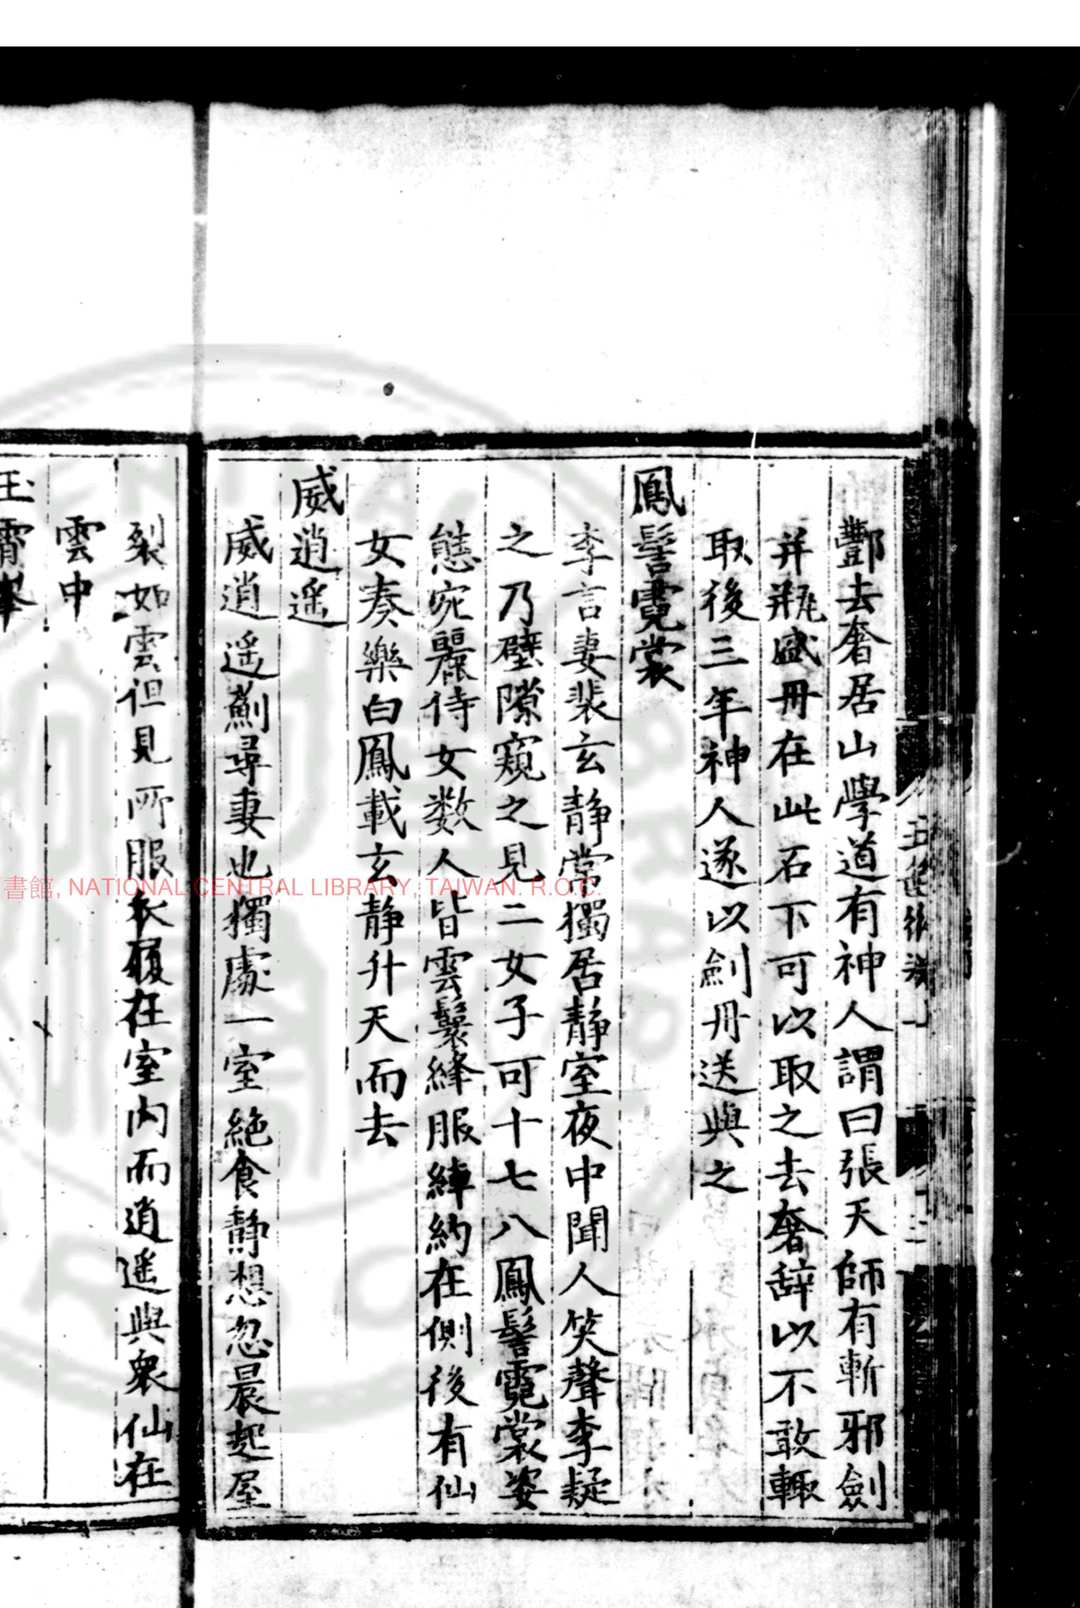 酆去奢居山學道有神人謂曰張天師有斬邪劍
并瓶盛丹在此石下可以取之去奢辭以不敢輙
取後三年神人遂以劍丹送與之
鳳髻霓裳
李言妻裴玄静常獨居静室夜中聞人笑聲李疑
之乃壁隙窺之見二女子可十七八鳳髻霓裳姿
態宛麗侍女数人皆雲鬟絳服綽約在側後有仙
女奏樂白鳳載玄静升天而去
戚逍遥
戚逍遥薊尋妻也獨處一室絶食静想忽晨起屋
裂如雲但見所服衣履在室内而逍遥與衆仙在
雲中
玉霄峯
書館, NATIONAL CENTRAL LIBRARY, TAIWAN. R.O.C.